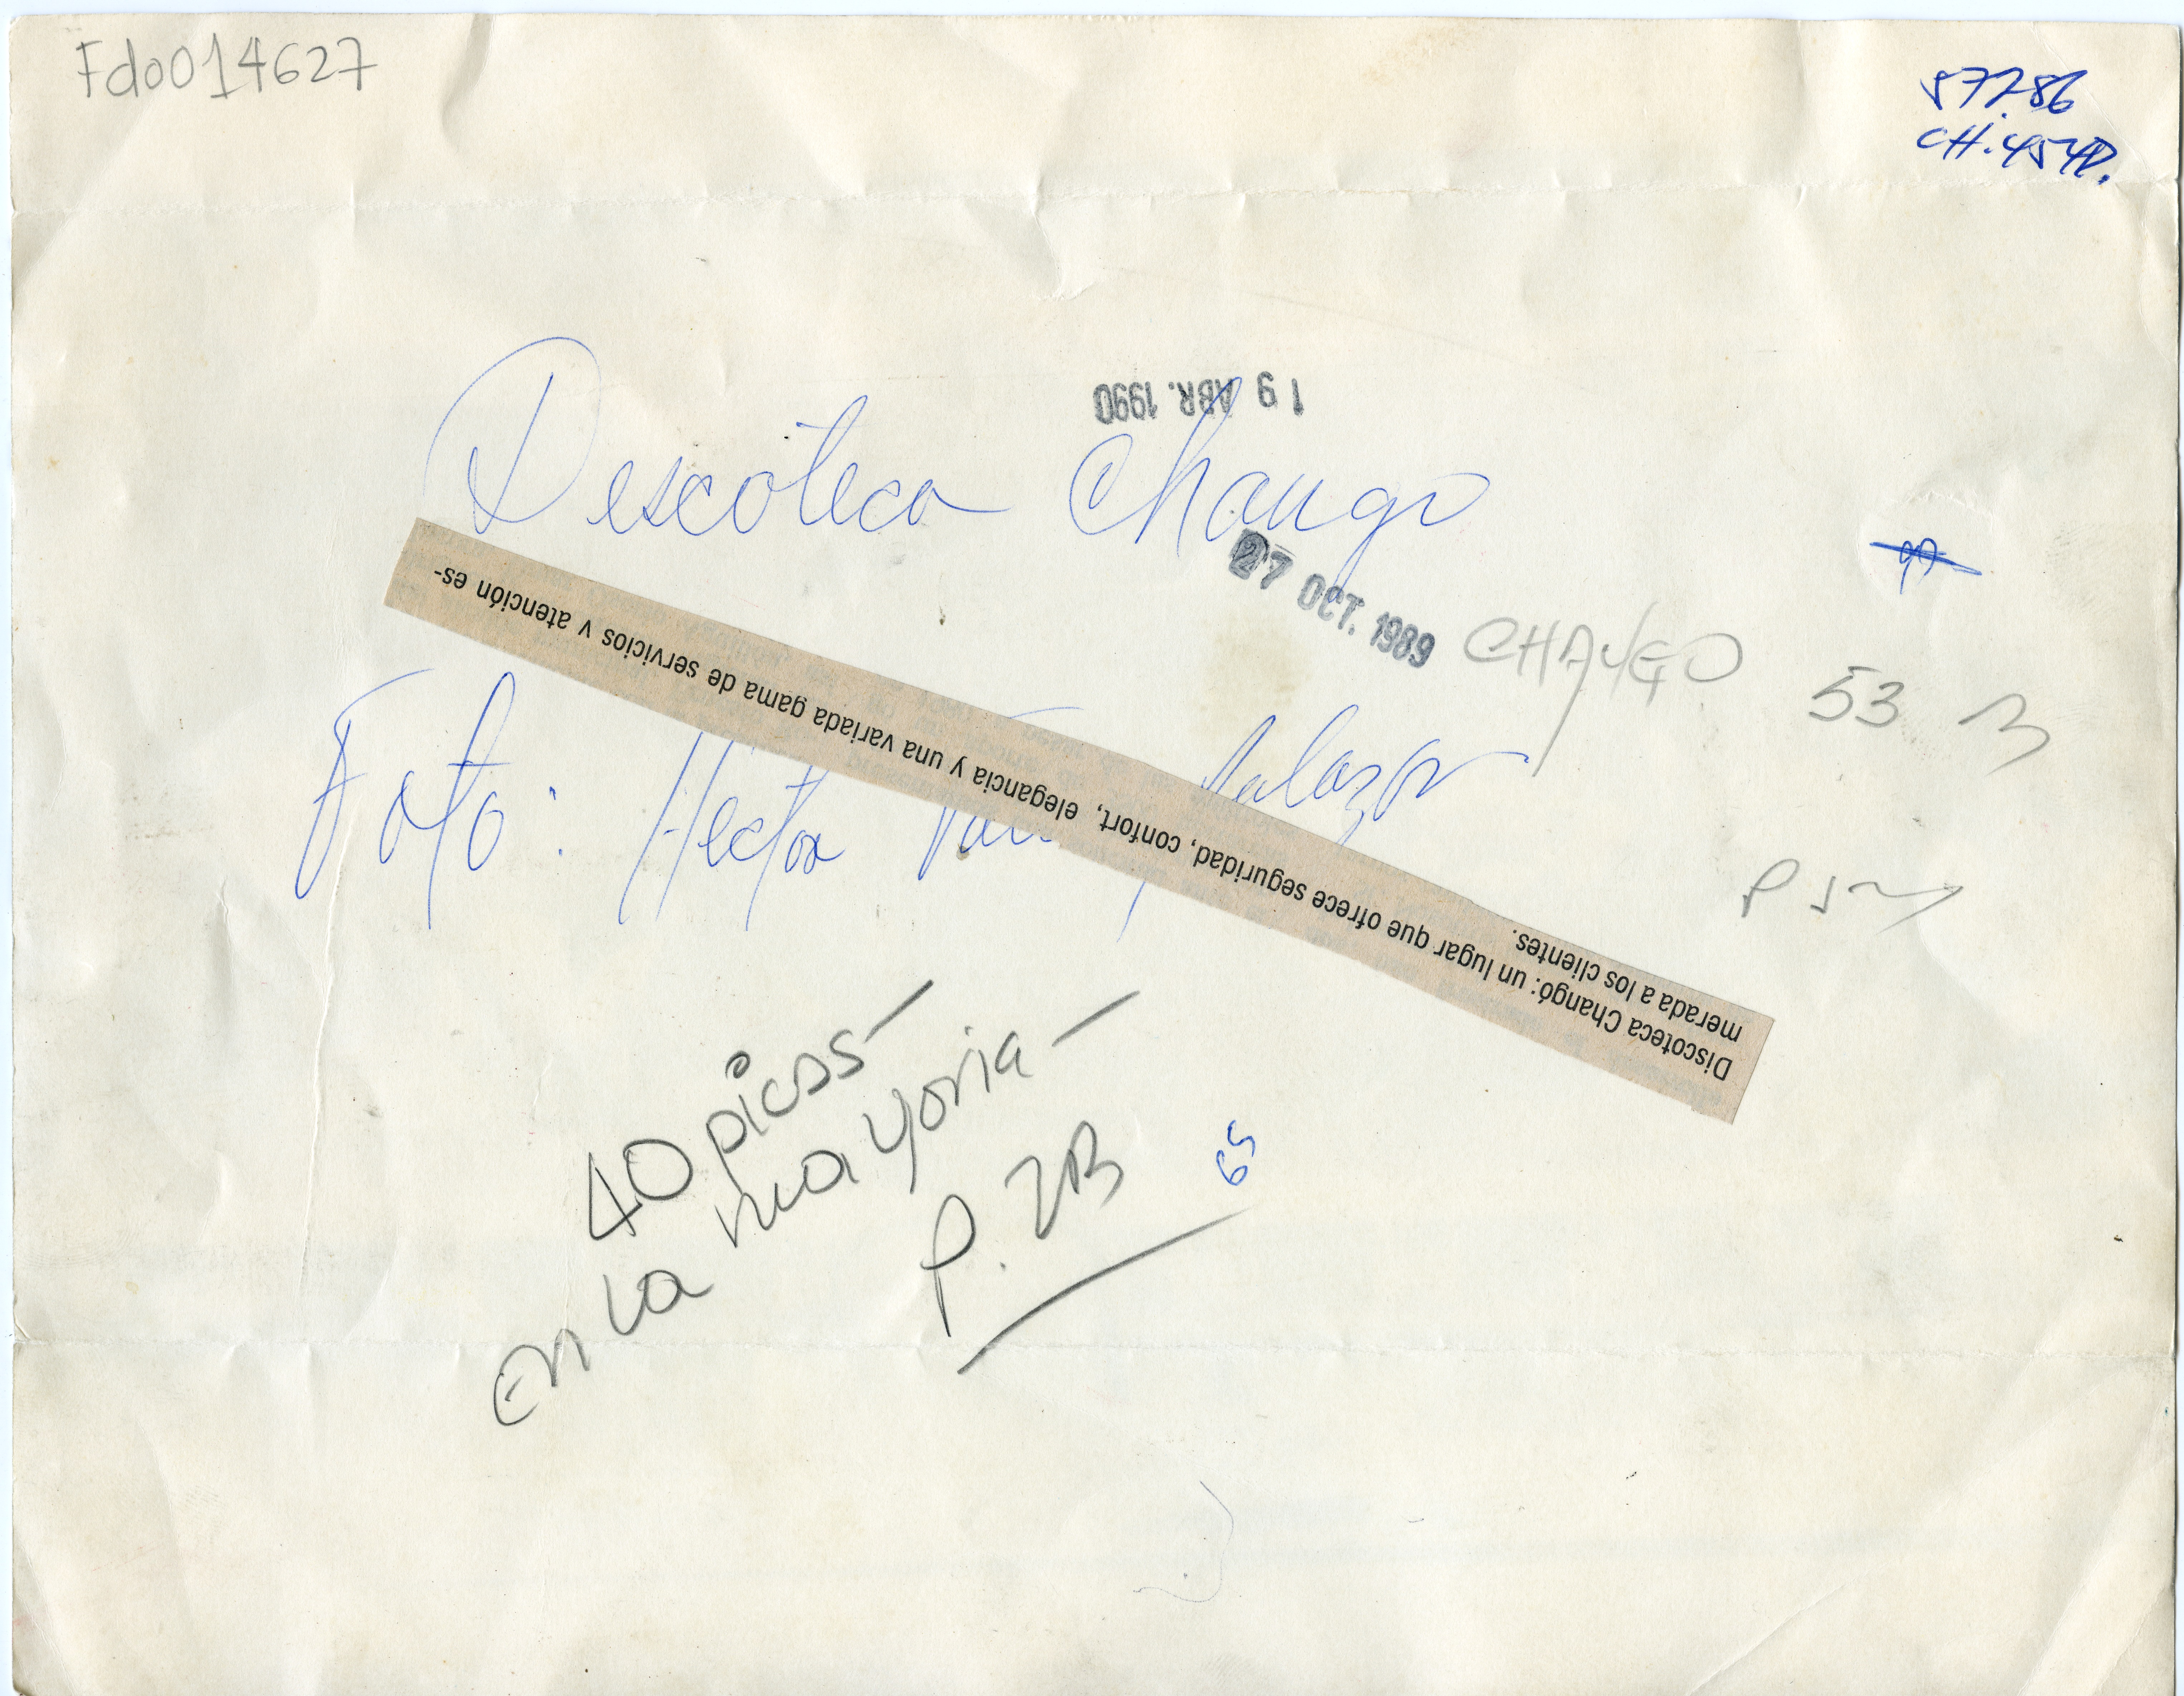 Fdo014627
57286
CH.454D.
19 ABR. 1990
Discoteca Chango
27 OCT. 1989
CHANGO 53 M
Foto: Hector Salazar
Discoteca Changó: un lugar que ofrece seguridad, confort, elegancia y una variada gama de servicios y atención es-
merada a los clientes.
40 picas-
en la mayoria-
P. 2B
65